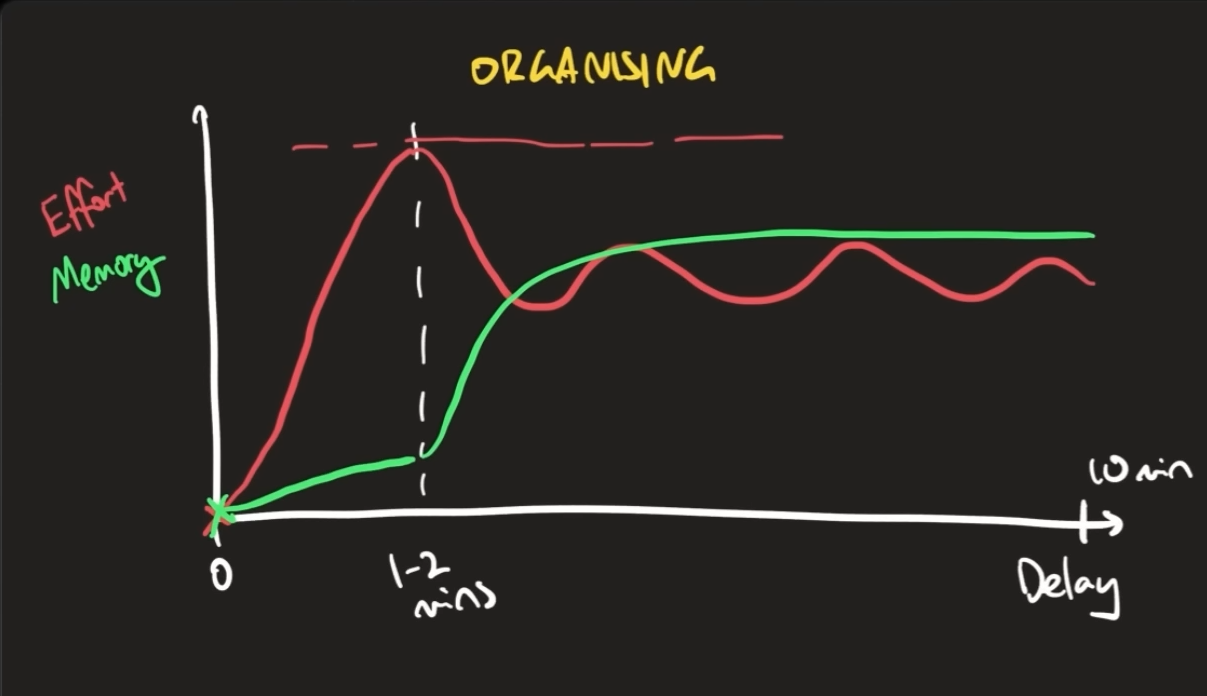 ORGANISING
Effort
Memory
10 min
0
1-2
mins
Delay